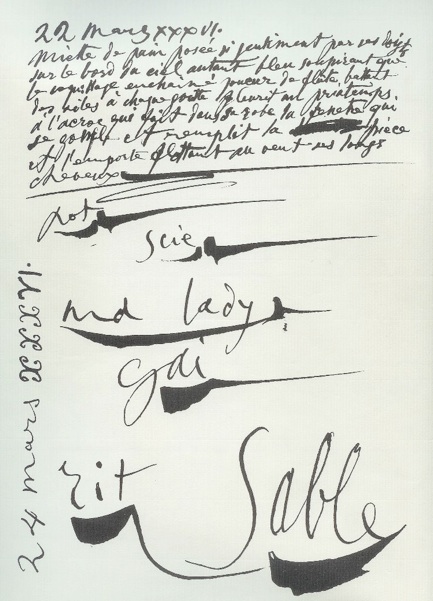 22 mars XXXVI.
miette de pain posée si gentiment par ses doigts
sur le bord du ciel autant bleu soupirent que
le coquillage enchainé joueur de flute battant
des ailes à chaque goutte fleurit au printemps
à l'accroc que fait dans sa robe la fenetre qui
se gonfle et remplit la pièce
et l'emporte flottant au vent ses longs
cheveux
not
scie
md lady
gai
rit Sable
24 mars XXXVI.